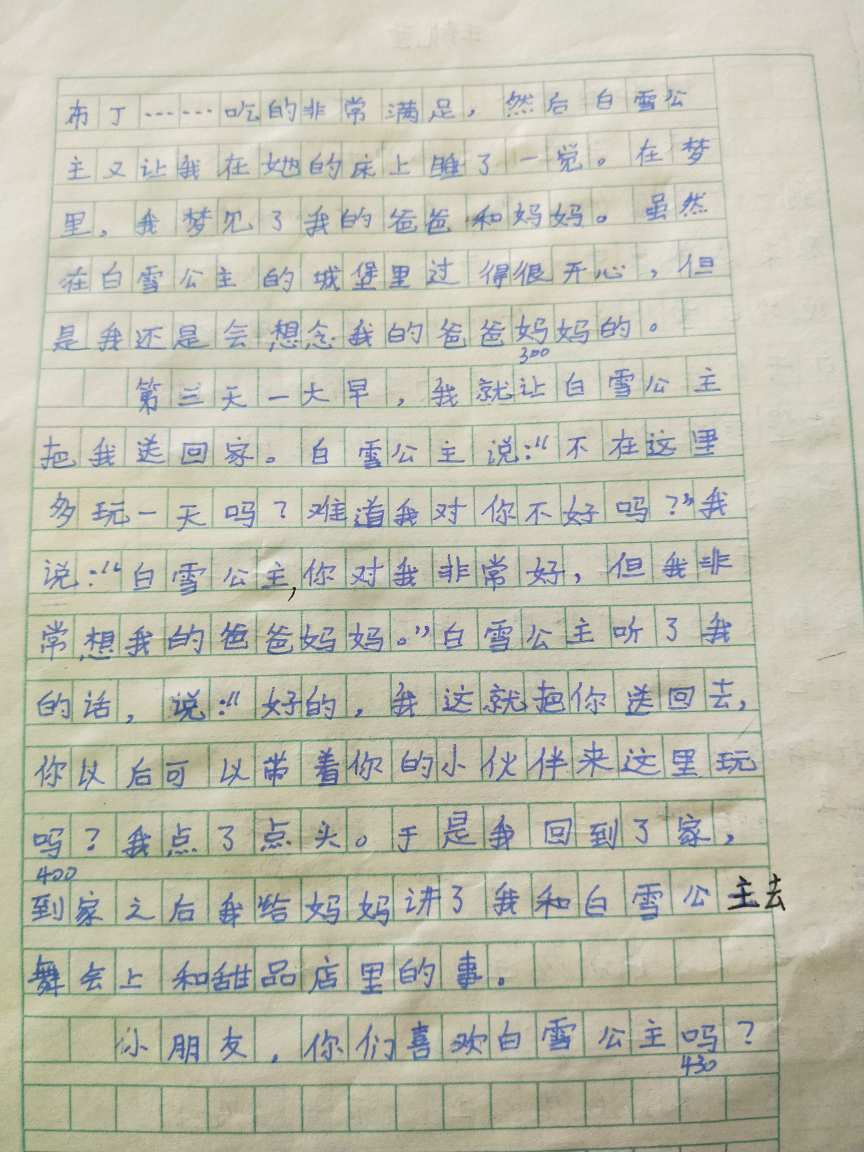 布丁……吃的非常满足，然后白雪公
主又让我在她的床上睡了一觉。在梦
里，我梦见了我的爸爸和妈妈。虽然
在白雪公主的城堡里过得很开心，但
是我还是会想念我的爸爸妈妈的。
300
第三天一大早，我就让白雪公主
把我送回家。白雪公主说：“不在这里
多玩一天吗？难道我对你不好吗？”我
说：“白雪公主，你对我非常好，但我非
常想我的爸爸妈妈。”白雪公主听了我
的话，说：“好的，我这就把你送回去，
你以后可以带着你的小伙伴来这里玩
吗？我点了点头。于是我回到了家，
400
到家之后我给妈妈讲了我和白雪公主去
舞会上和甜品店里的事。
小朋友，你们喜欢白雪公主吗？
430